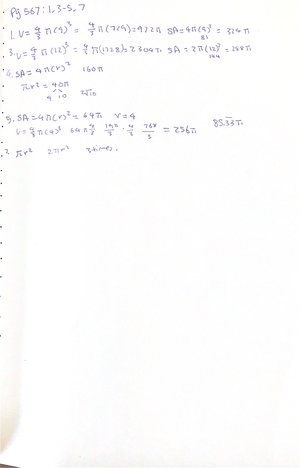 Pg 567: 1, 3-5, 7
1. V = 4/3 π(9)³ = 4/3 π(729) = 972π SA = 4π(9)² = 324π
81
3. V = 4/3 π(12)³ = 4/3 π(1728) = 2304π. SA = 2π(12)² = 288π
144
4. SA = 4π(r)² 160π
πr² = 40π
4 10 2√10
5. SA = 4π(r)² = 64π r = 4
V = 4/3 π(4)³ 64π 4/3 192/3 · 4/3 768/3 = 256π 85.33π
7. πr² 2πr² 2 times.